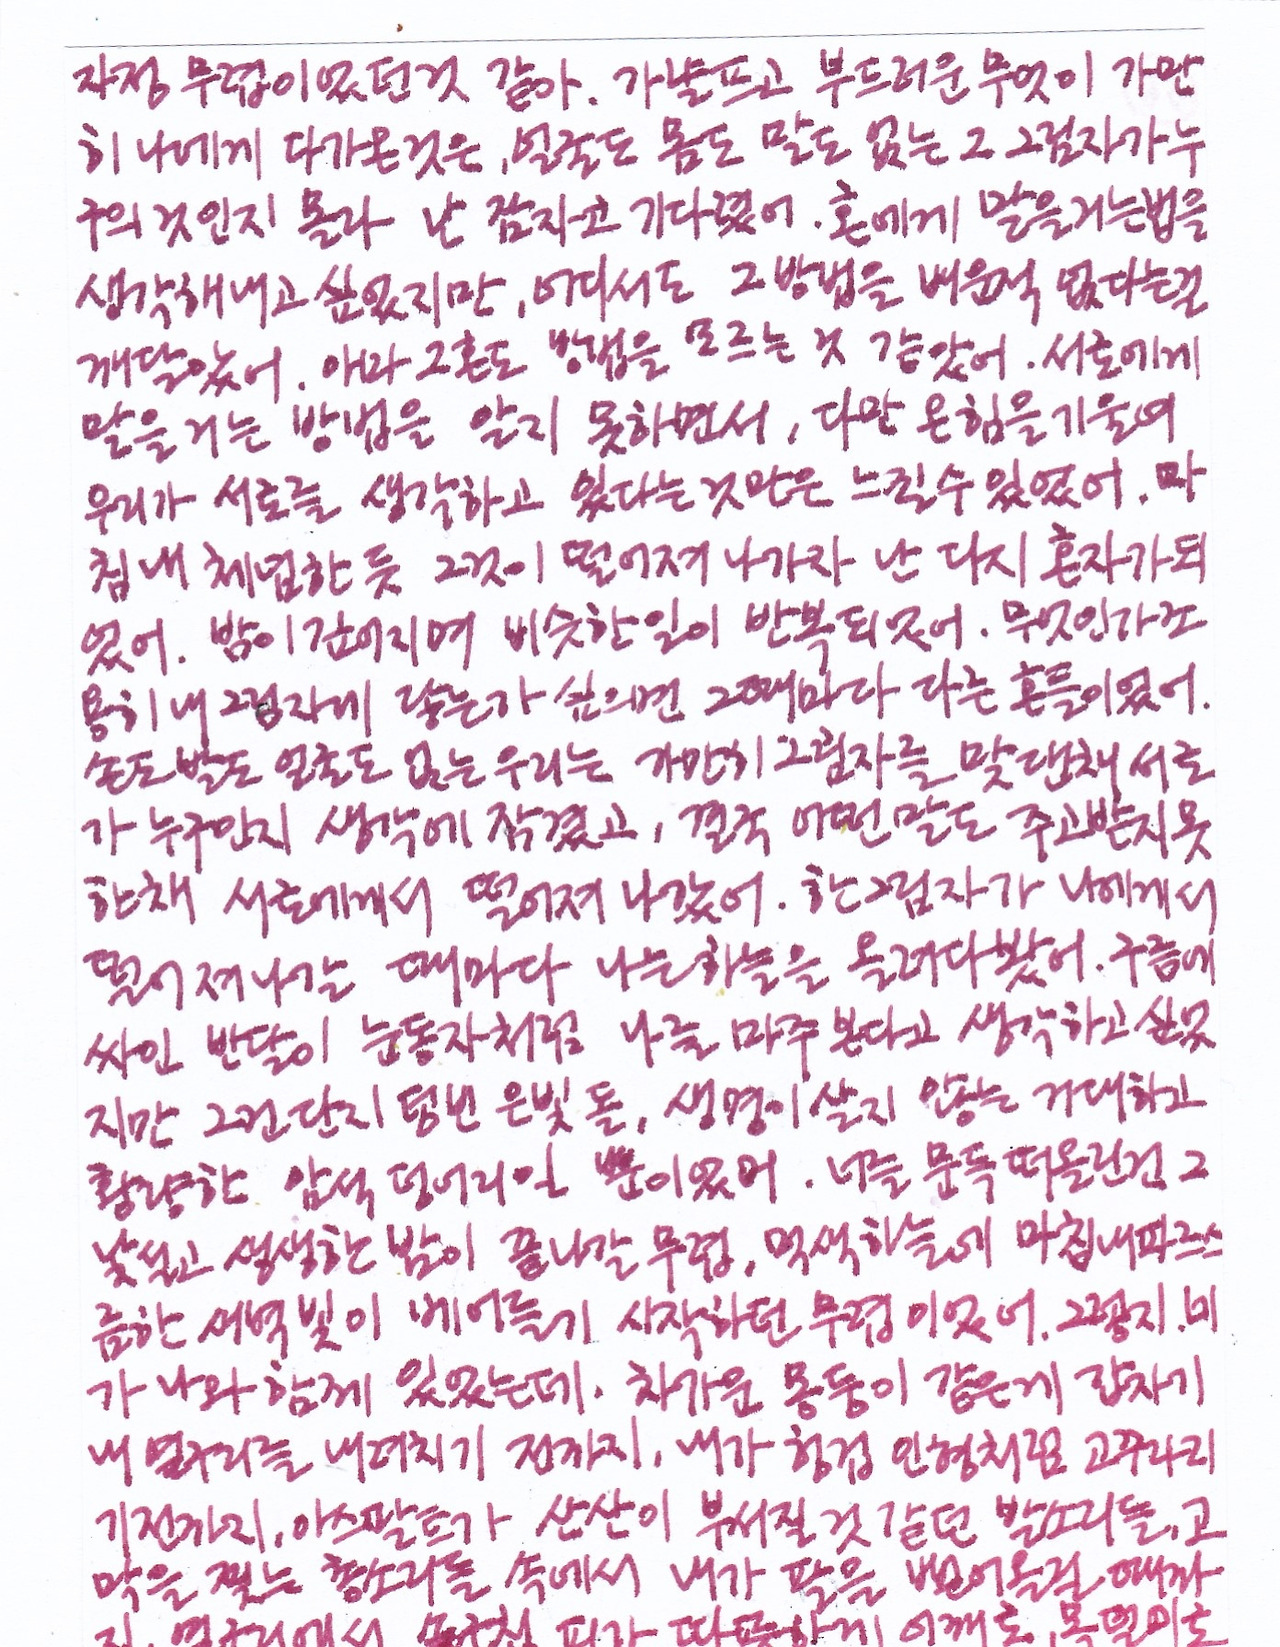 자정 무렵이었던것 같아. 가냘프고 부드러운 무엇이 가만
히 나에게 다가온것은, 얼굴도 몸도 말도 없는 그 그림자가 누
구의 것인지 몰라 난 잠자코 기다렸어. 혼에게 말을 거는법을
생각해내고 싶었지만, 어디서도 그 방법을 배운적 없다는걸
깨달았어. 아마 그혼도 방법을 모르는 것 같았어. 서로에게
말을 거는 방법을 알지 못하면서, 다만 온힘을 기울여
우리가 서로를 생각하고 있다는것만은 느낄수 있었어. 마
침내 체념한 듯 그것이 떨어져 나가자 난 다시 혼자가 되
었어. 밤이 깊어지며 비슷한 일이 반복되었어. 무엇인가 조
용히 내 그림자에 닿는가 싶으면 그때마다 다른 혼들이었어.
손도 발도 얼굴도 없는 우리는 가만히 그림자를 맞댄채 서로
가 누구인지 생각에 잠겼고, 결국 어떤 말도 주고받지 못
한채 서로에게서 떨어져 나갔어. 한 그림자가 나에게서
떨어져나갈 때마다 나는 하늘을 올려다봤어. 구름에
싸인 반달이 눈동자처럼 나를 마주 본다고 생각하고 싶었
지만 그건 단지 텅빈 은빛 돌, 생명이 살지 않는 거대하고
황량한 암석 덩어리일 뿐이었어. 너를 문득 떠올린건 그
낯설고 생생한 밤이 끝나갈 무렵, 먹색하늘에 마침내 파르스
름한 새벽 빛이 베어들기 시작하던 무렵이었어. 그렇지. 네
가 나와 함께 있었는데. 차가운 몽둥이 같은게 갑자기
내 옆구리를 내려치기 전까지, 내가 헝겊 인형처럼 고꾸라지
기전까지, 아스팔트가 산산이 부서질 것 같던 발소리들, 고
막을 찢는 총소리들 속에서 내가 팔을 뻗어올릴 때까
지, 옆구리에서 솟구친 피가 따뜻하게 어깨로, 목덜미로